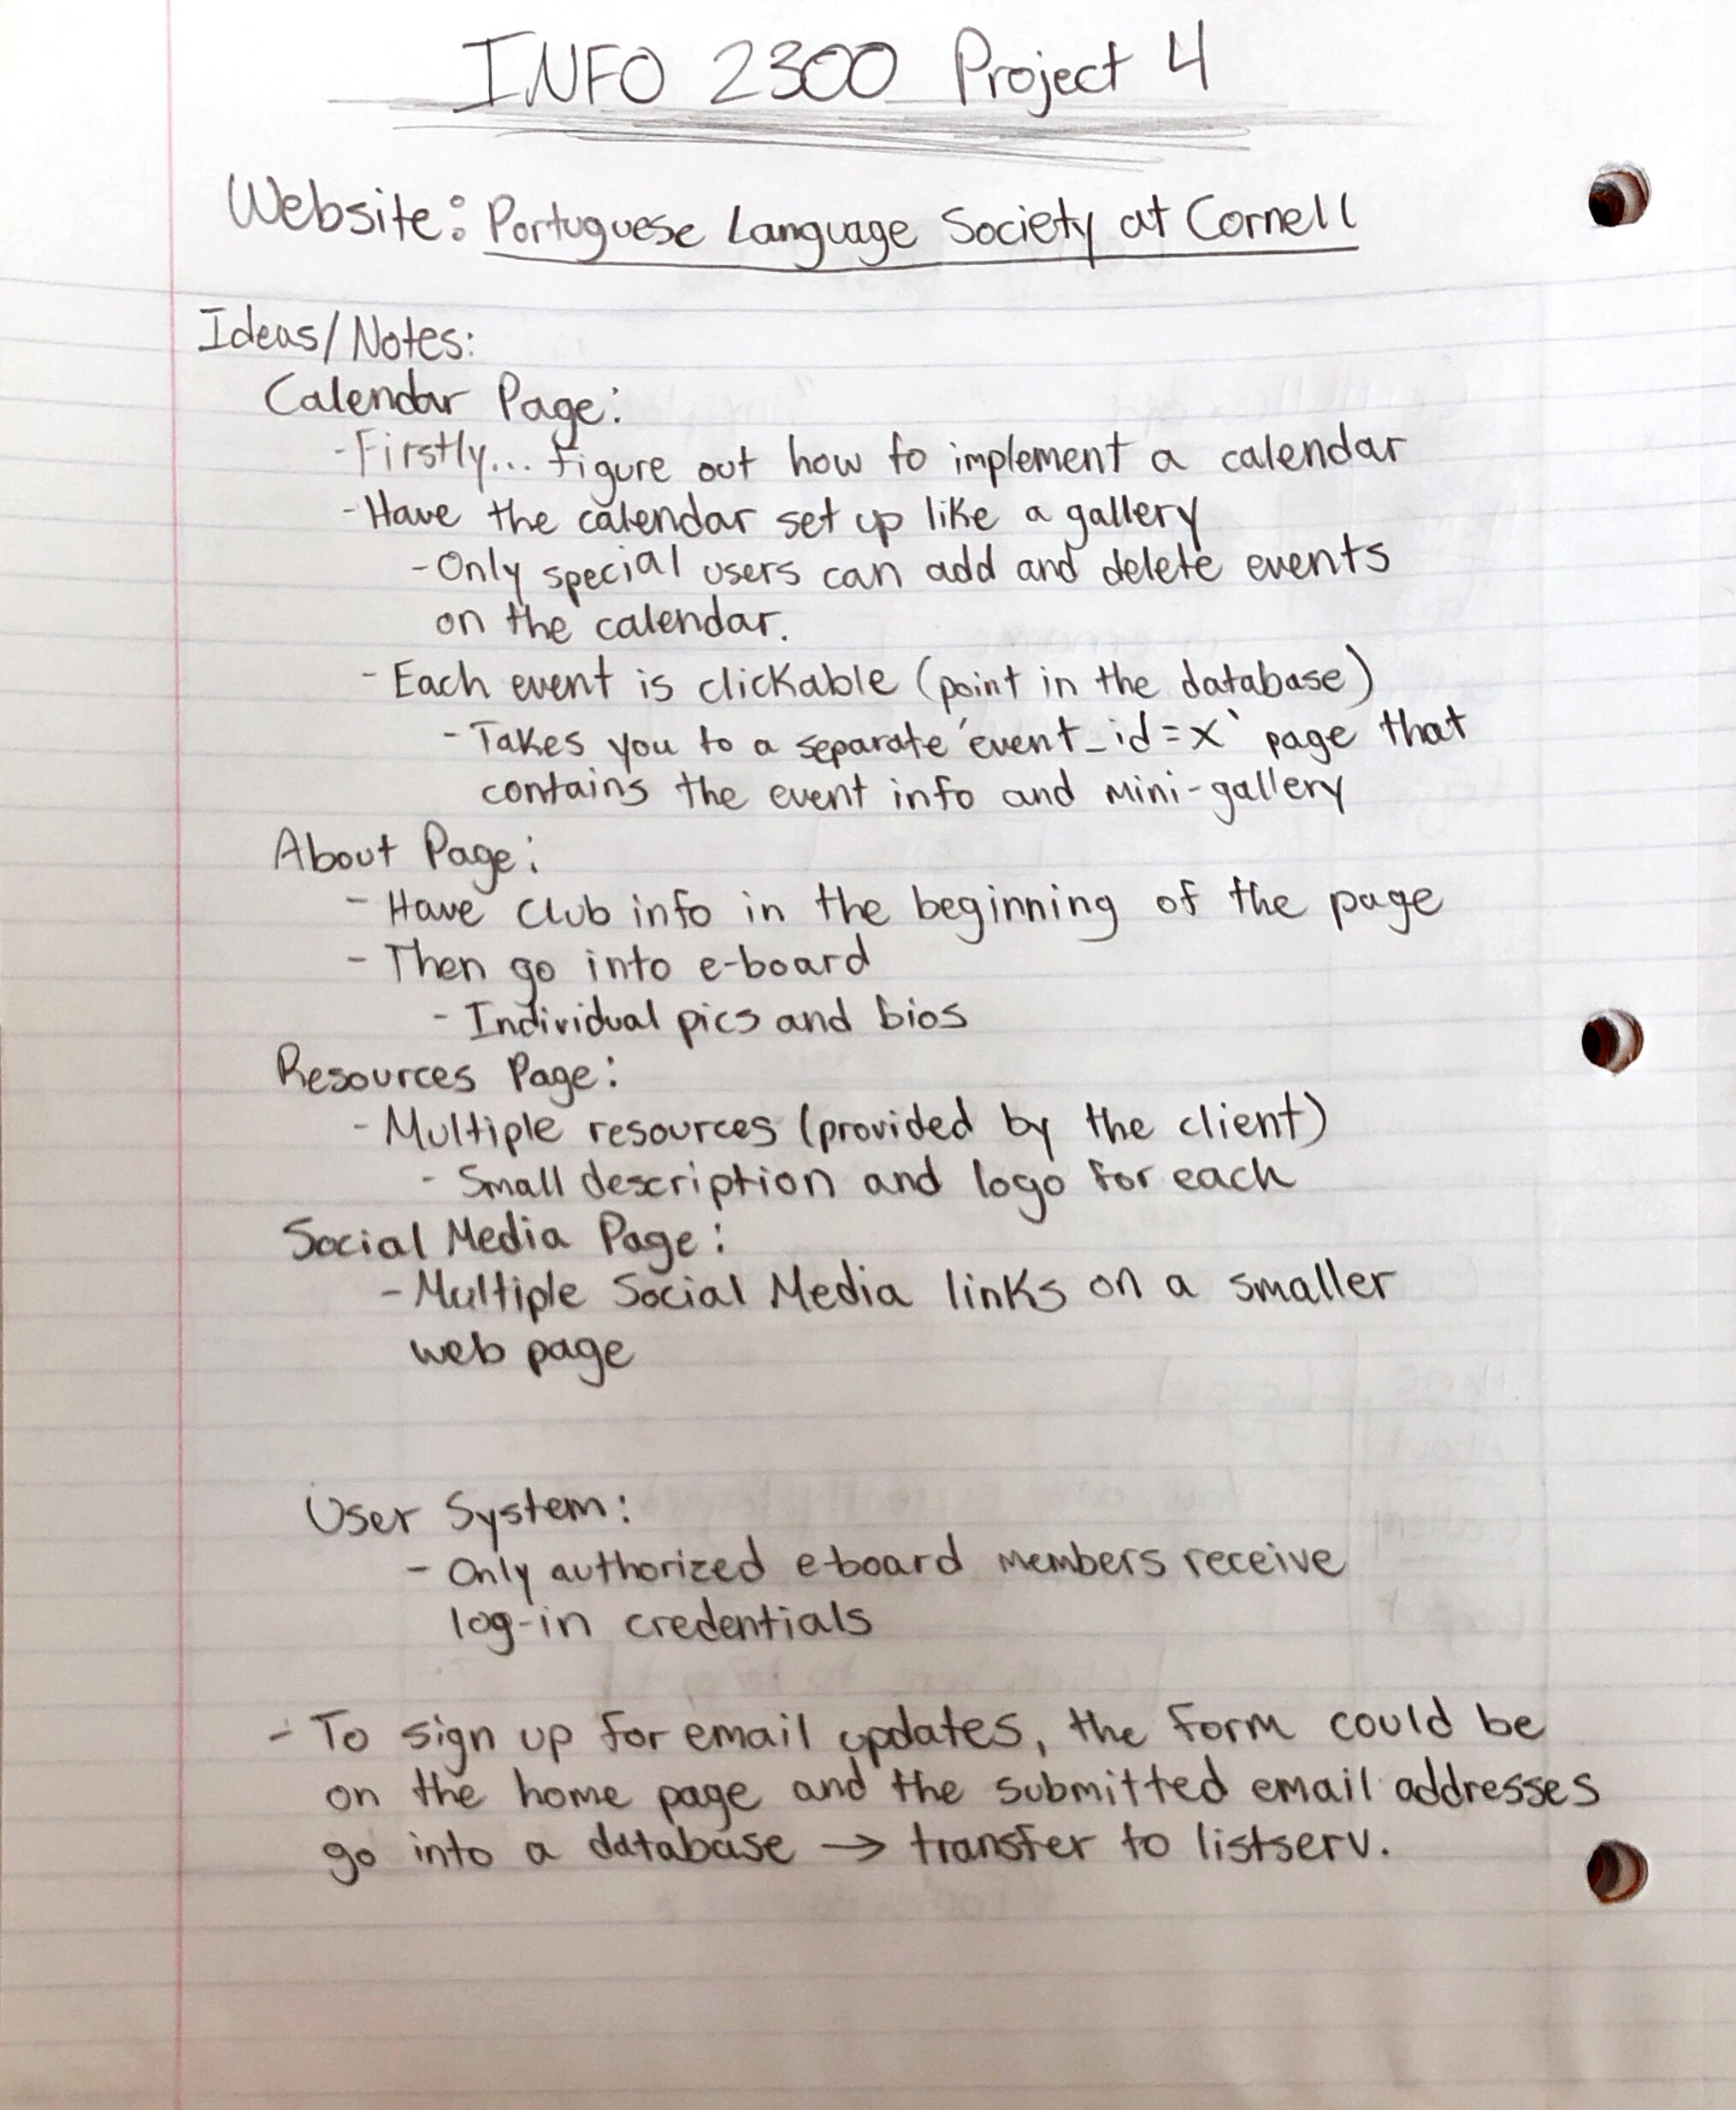 INFO 2300 Project 4
Website: Portuguese Language Society at Cornell
Ideas/Notes:
Calendar Page:
- Firstly... figure out how to implement a calendar
- Have the calendar set up like a gallery
- Only special users can add and delete events
on the calendar.
- Each event is clickable (point in the database)
- Takes you to a separate 'event_id=x` page that
contains the event info and mini-gallery
About Page:
- Have club info in the beginning of the page
- Then go into e-board
- Individual pics and bios
Resources Page:
- Multiple resources (provided by the client)
- Small description and logo for each
Social Media Page:
- Multiple Social Media links on a smaller
web page
User System:
- Only authorized e-board members receive
log-in credentials
- To sign up for email updates, the form could be
on the home page and the submitted email addresses
go into a database → transfer to listserv.